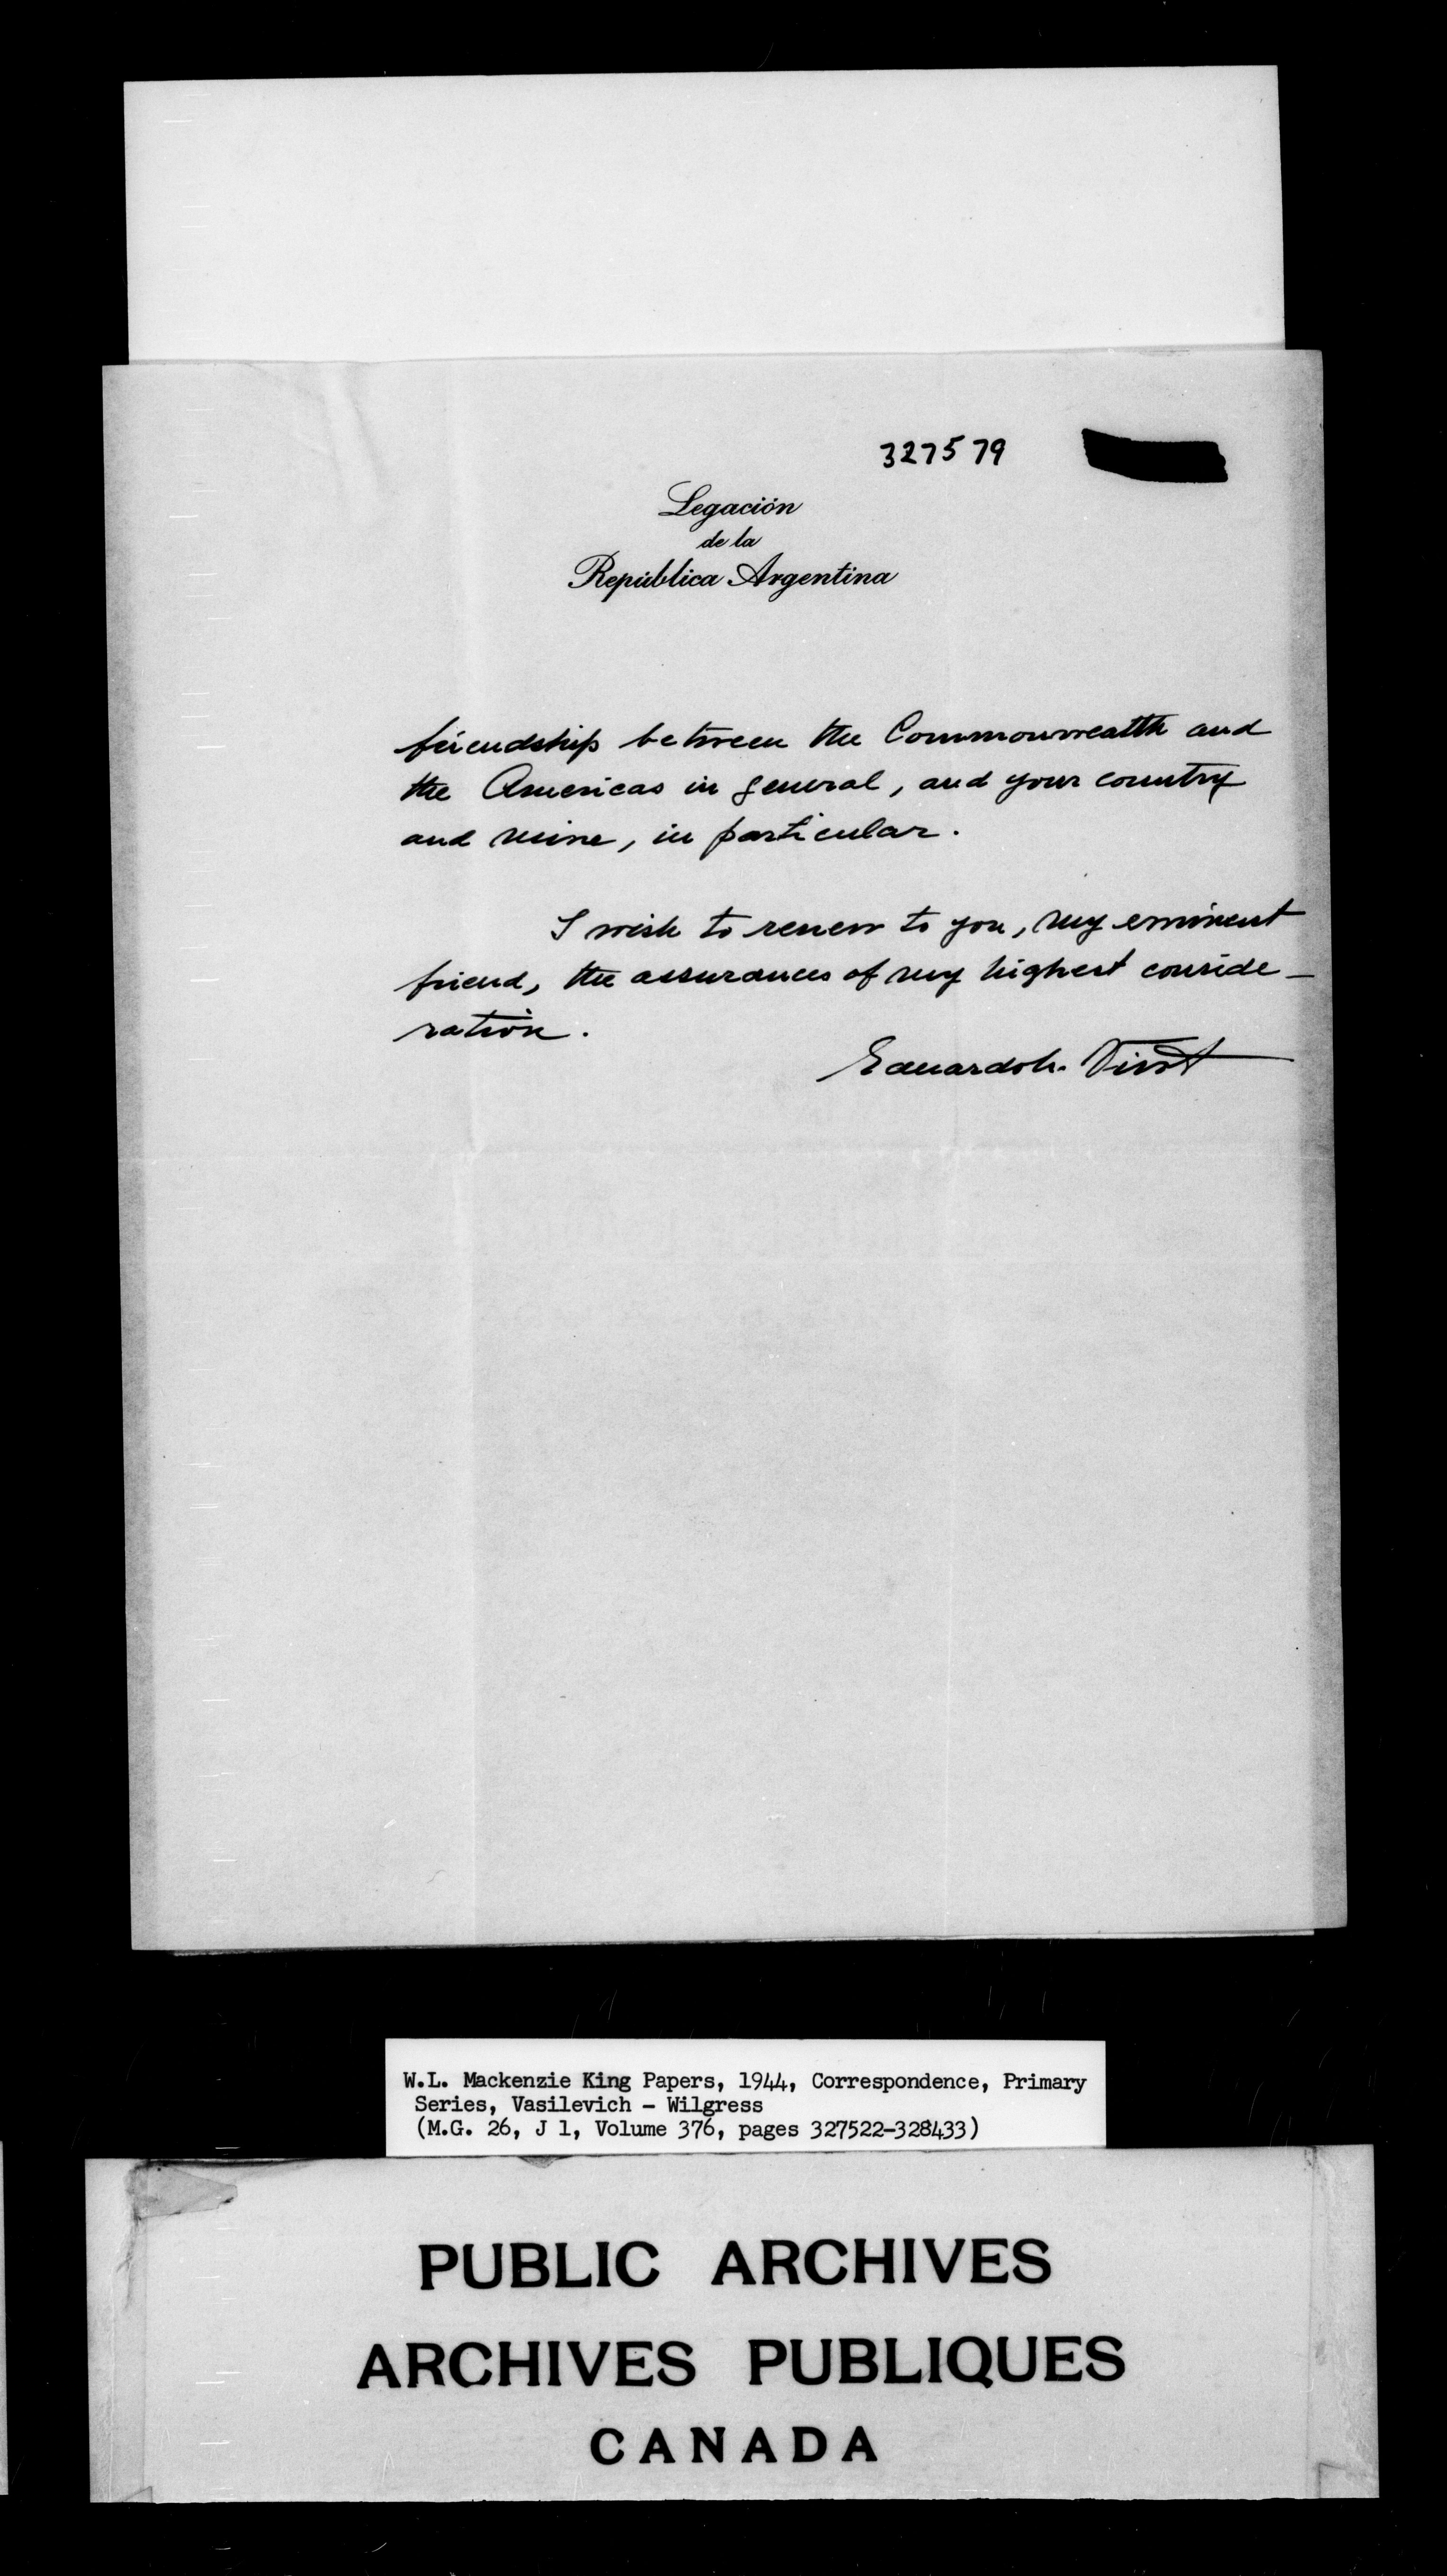 327579
Legación
de la
República Argentina
friendship between the Commonwealth and
the Americas in general, and your country
and mine, in particular.
I wish to renew to you, my eminent
friend, the assurances of my highest conside-
ration.
Eduardo L. Vivot
W.L. Mackenzie King Papers, 1944, Correspondence, Primary
Series, Vasilevich - Wilgress
(M.G. 26, J 1, Volume 376, pages 327522-328433)
PUBLIC ARCHIVES
ARCHIVES PUBLIQUES
CANADA